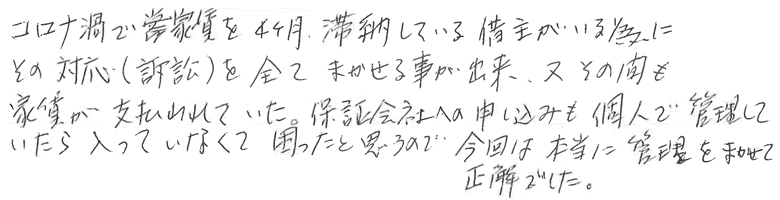 コロナ渦で営家賃を4ヶ月滞納している借主がいる為に
その対応(訴訟)を全てまかせる事が出来、又その间も
家賃が支払われていた。保証会社への申し込みも個人で管理して
いたら入っていなくて困ったと思うので今回は本当に管理をまかせて
正解でした。